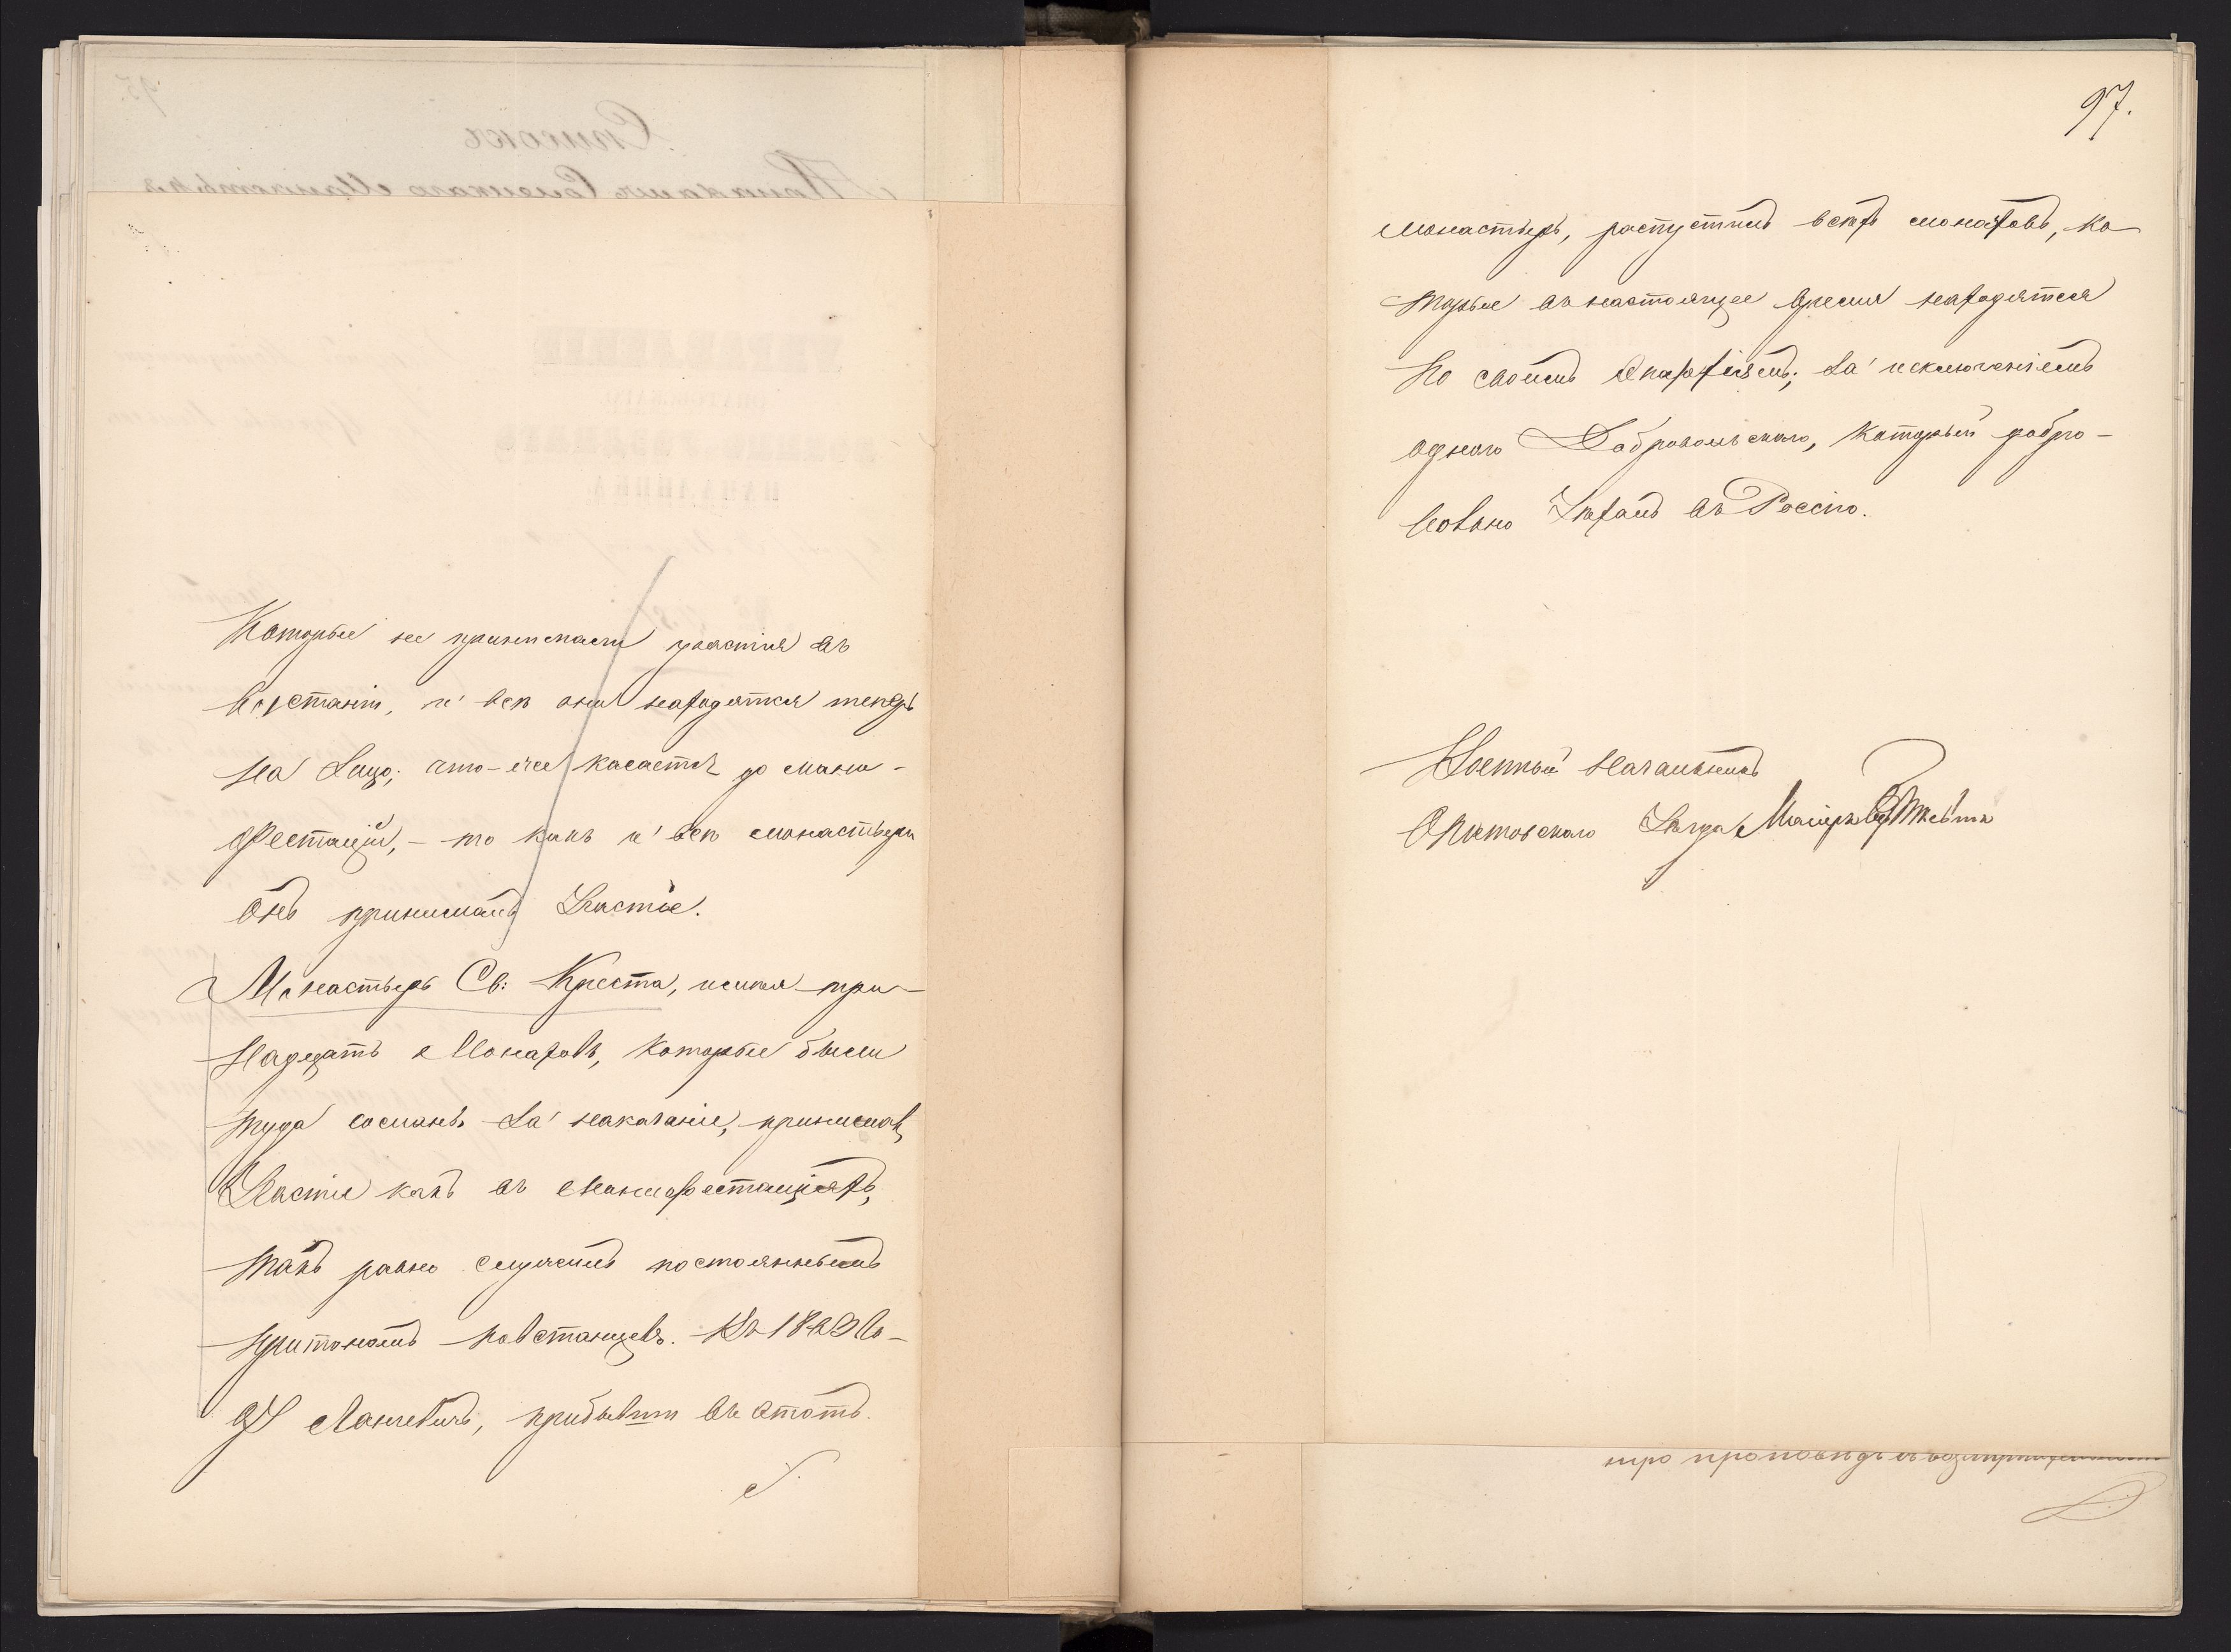 Которые не принимали участія въ
возстаніи, и всѣ они находятся теперь
на лицо; что-же касается до мани-
фестацій, – то какъ и всѣ монастыри
онъ принималъ участіе.
Монастырь Св: Креста, имѣлъ три-
надцать Монаховъ, которые были
туда сосланы за наказаніе, принимавъ
участіе какъ въ манифестаціяхъ,
такъ равно служилъ постояннымъ
притономъ повстанцевъ. Въ 1863 го-
ду Лангевичъ, прибывши въ этотъ
97.
монастырь, распустилъ всѣхъ монаховъ, ко
торые въ настоящее время находятся
по своимъ Епархіямъ; за исключеніемъ
одного Добровольскаго, который добро-
вольно уѣхалъ въ Россію.
Военный Начальникъ
Опатовскаго уѣзда, Маіоръ